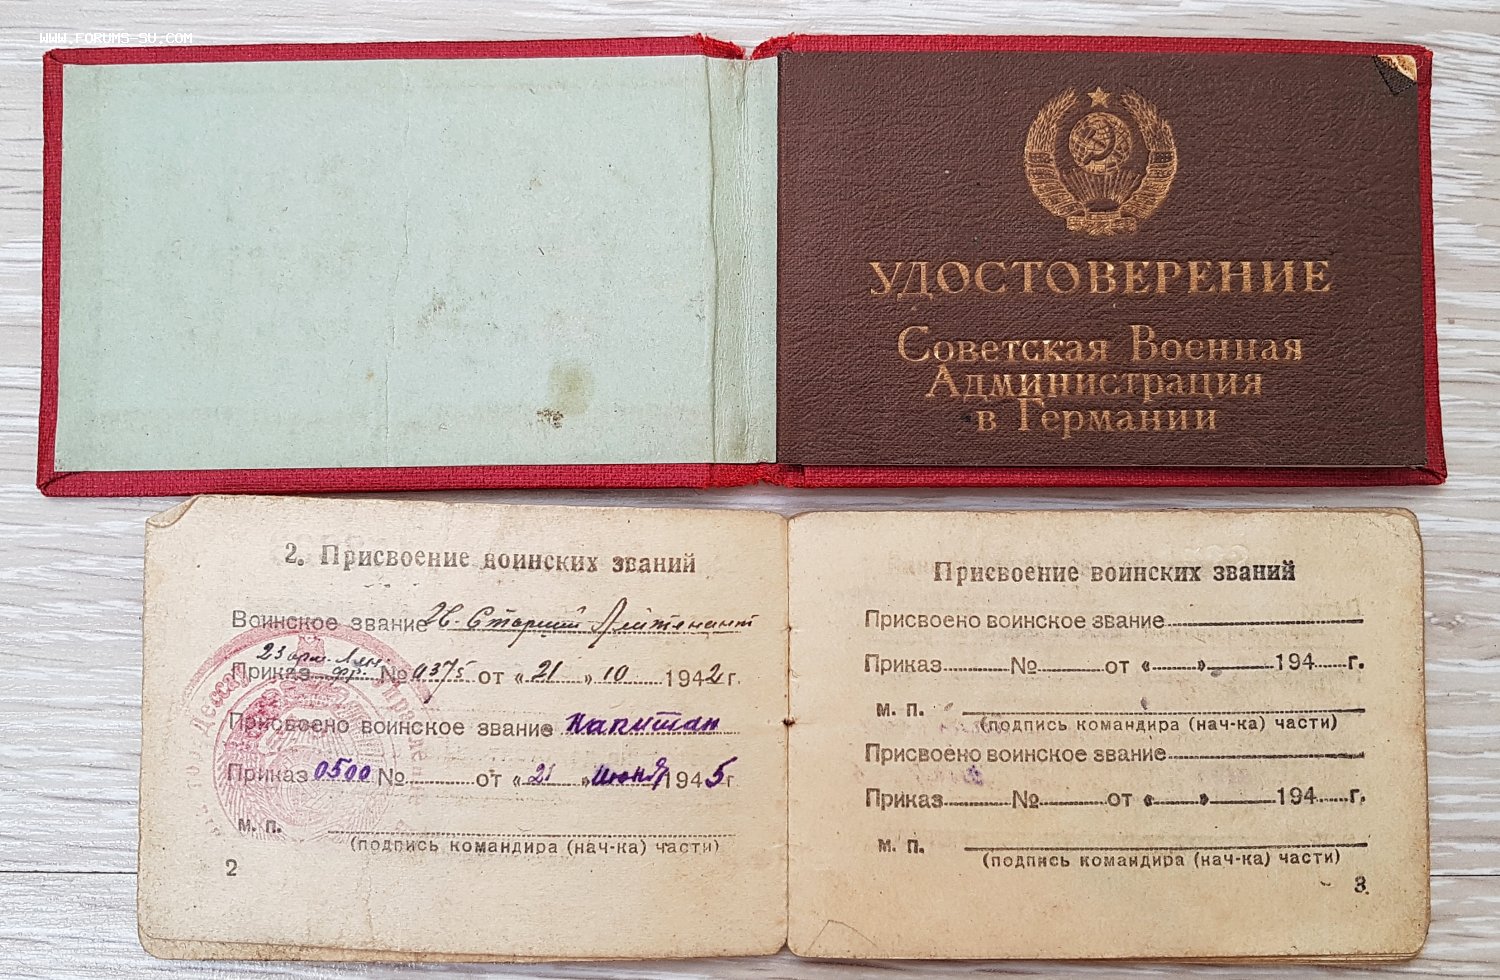 WWW.FORUMS-SU.COM
УДОСТОВЕРЕНИЕ
Советская Военная
Администрация
в Германии
2. Присвоение воинских званий
Воинское звание Старший Лейтенант
Приказ № 0375 от «21» 10 1942 г.
Присвоено воинское звание капитан
Приказ 0500 № от «21» июня 1945 г
м. п.
(подпись командира (нач-ка) части)
2
Присвоение воинских званий
Присвоено воинское звание
Приказ № от « » 194 г.
м. п.
(подпись командира (нач-ка) части)
Присвоено воинское звание
Приказ № от « » 194 г.
м. п.
(подпись командира (нач-ка) части)
3